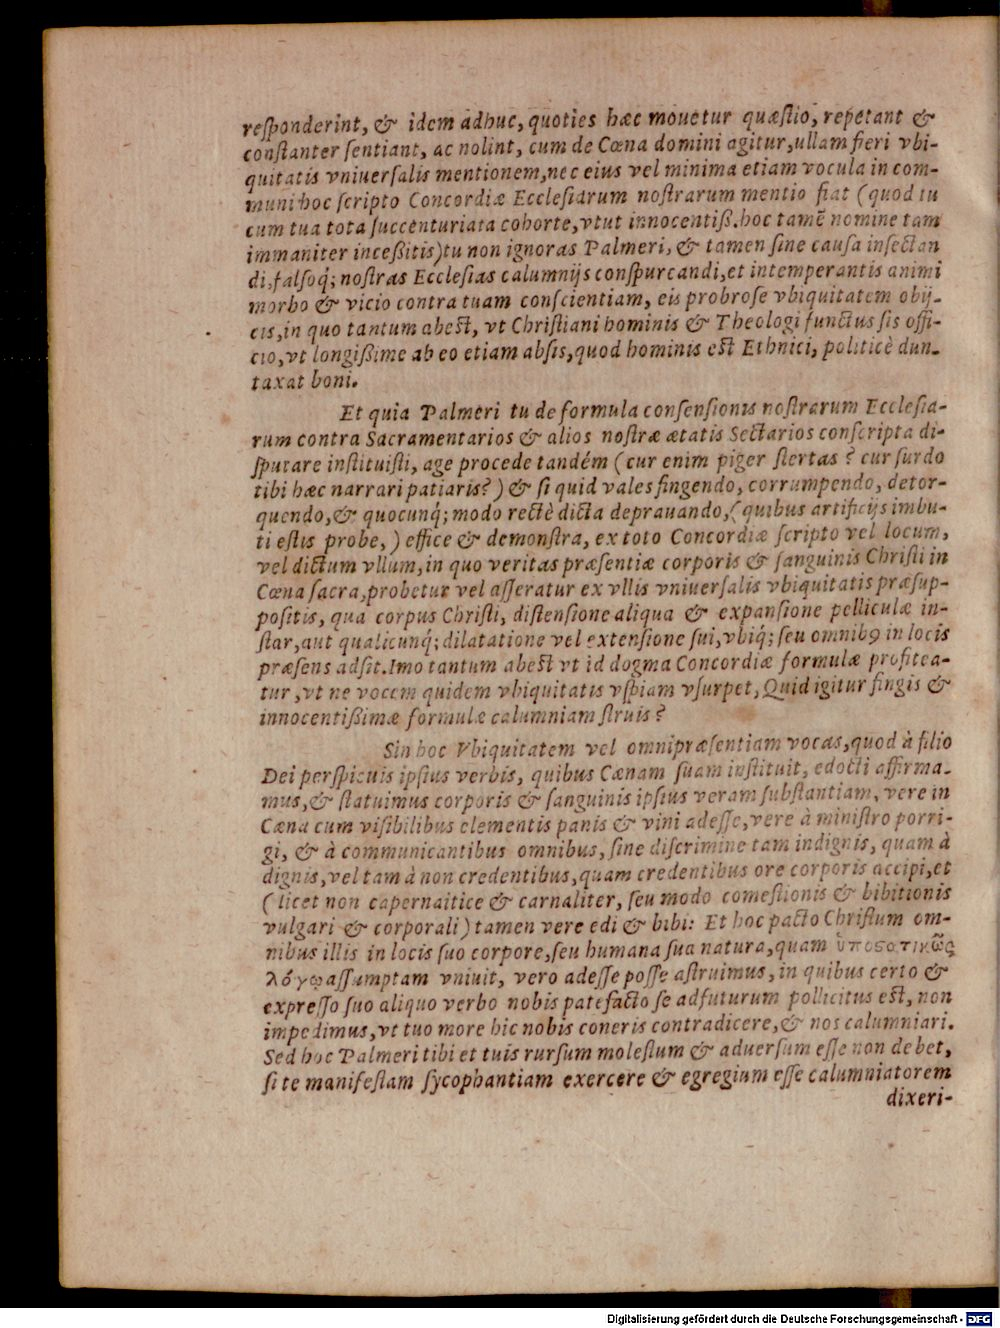 reſponderint, & idem adhuc, quoties hæc mouetur quæſtio, repetant &
conſtanter ſentiant, ac nolint, cum de Cœna domini agitur, ullam fieri vbi-
quitatis vniuerſalis mentionem, nec eius vel minima etiam vocula in com-
muni hoc ſcripto Concordiæ Eccleſiarum noſtrarum mentio fiat (quod tu
cum tua tota ſuccenturiata cohorte, vtut innocentiß. hoc tamē nomine tam
immaniter inceßitis) tu non ignoras Palmeri, & tamen ſine cauſa inſectan
di, falſoq́; noſtras Eccleſias calumnijs conſpurcandi, et intemperantis animi
morbo & vicio contra tuam conſcientiam, eis probroſe vbiquitatem obij-
cis, in quo tantum abest, vt Chriſtiani hominis & Theologi functus ſis offi-
cio, vt longißime ab eo etiam absis, quod hominis est Ethnici, politicè dun-
taxat boni.
Et quia Palmeri tu de formula conſenſionis noſtrarum Eccleſia-
rum contra Sacramentarios & alios noſtræ ætatis Sectarios conſcripta di-
ſputare inſtituiſti, age procede tandém (cur enim piger ſtertas? cur ſurdo
tibi hæc narrari patiaris?) & ſi quid vales fingendo, corrumpendo, detor-
quendo, & quocunq́; modo rectè dicta deprauando, (quibus artificijs imbu-
ti estis probe,) effice & demonſtra, ex toto Concordiæ ſcripto vel locum,
vel dictum vllum, in quo veritas præſentiæ corporis & ſanguinis Chriſti in
Cœna ſacra, probetur vel aſſeratur ex vllis vniuerſalis vbiquitatis præſup-
poſitis, qua corpus Chriſti, diſtenſione aliqua & expanſione pelliculæ in-
ſtar, aut qualicunq́; dilatatione vel extenſione ſui, vbiq́; ſeu omnibꝰ in locis
præſens adſit. Imo tantum abest vt id dogma Concordiæ formulæ profitea-
tur, vt ne vocem quidem vbiquitatis vſpiam vſurpet, Quid igitur fingis &
innocentißimæ formulæ calumniam ſtruis?
Sin hoc Vbiquitatem vel omnipræſentiam vocas, quod à filio
Dei perſpicuis ipſius verbis, quibus Cœnam ſuam inſtituit, edocti affirma-
mus, & ſtatuimus corporis & ſanguinis ipſius veram ſubſtantiam, vere in
Cœna cum viſibilibus elementis panis & vini adeſſe, vere à miniſtro porri-
gi, & à communicantibus omnibus, ſine diſcrimine tam indignis, quam à
dignis, vel tam à non credentibus, quam credentibus ore corporis accipi, et
(licet non capernaitice & carnaliter, ſeu modo comeſtionis & bibitionis
vulgari & corporali) tamen vere edi & bibi: Et hoc pacto Chriſtum om-
nibus illis in locis ſuo corpore, ſeu humana ſua natura, quam ὑποσατικῶς
λόγῳ aſſumptam vniuit, vero adeſſe poſſe aſtruimus, in quibus certo &
expreſſo ſuo aliquo verbo nobis patefacto ſe adfuturum pollicitus est, non
impedimus, vt tuo more hic nobis coneris contradicere, & nos calumniari.
Sed hoc Palmeri tibi et tuis rurſum moleſtum & aduerſum eſſe non debet,
ſi te manifeſtam ſycophantiam exercere & egregium eſſe calumniatorem
dixeri-
Digitalisierung gefördert durch die Deutsche Forschungsgemeinschaft - DFG